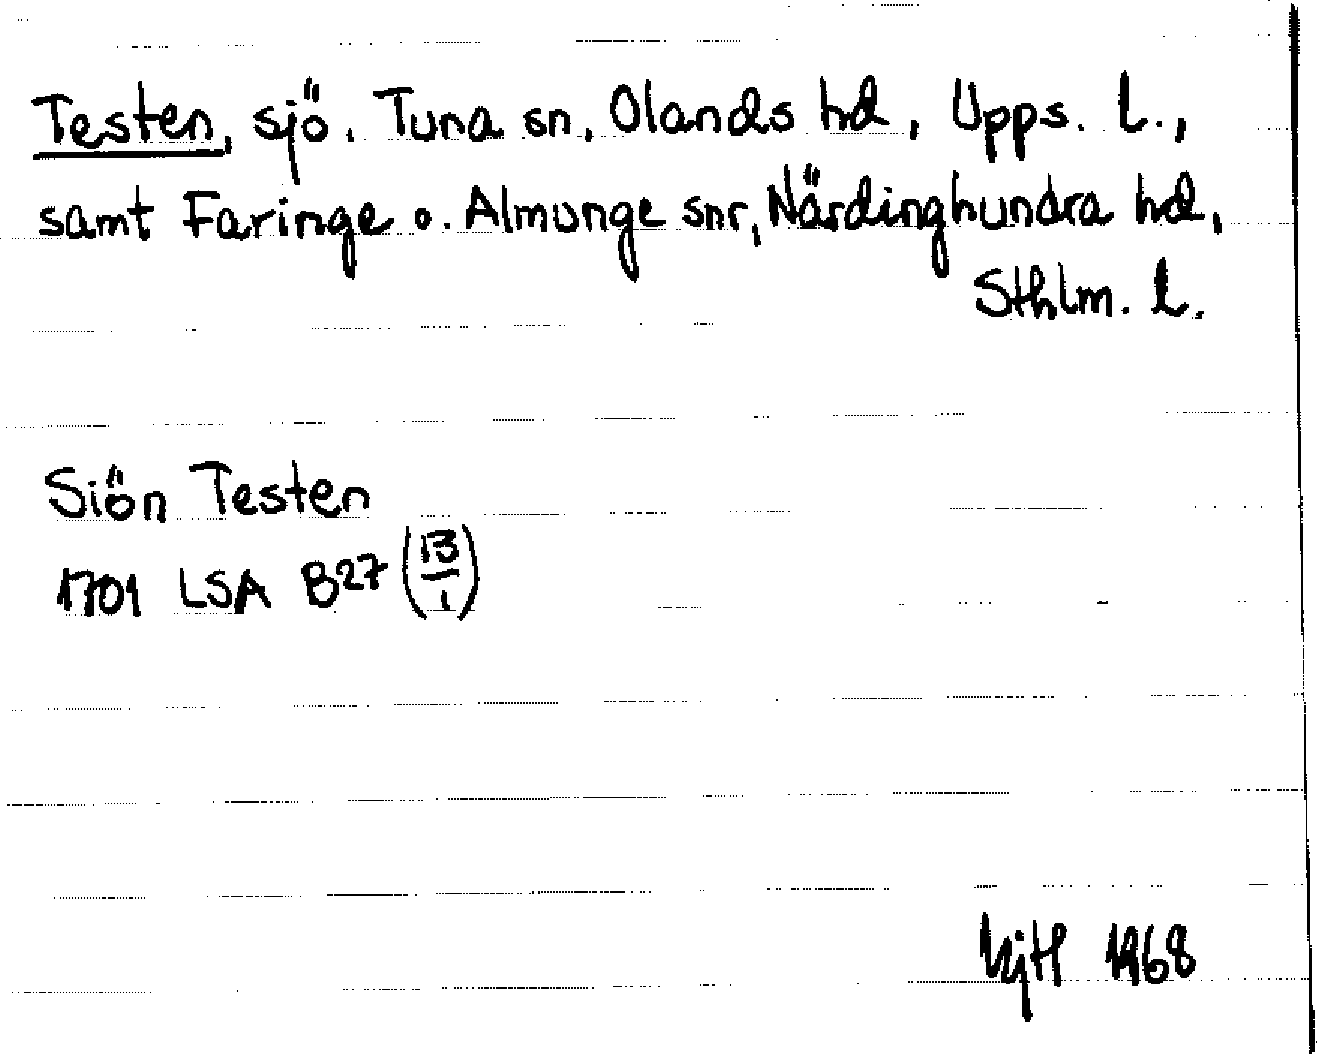 Testen, sjö. Tuna sn, Olands hd, Upps. l.,
samt Faringe o. Almunge snr, Närdinghundra hd,
Sthlm. l.
Siön Testen
1701 LSA B27 (13/1)
1968